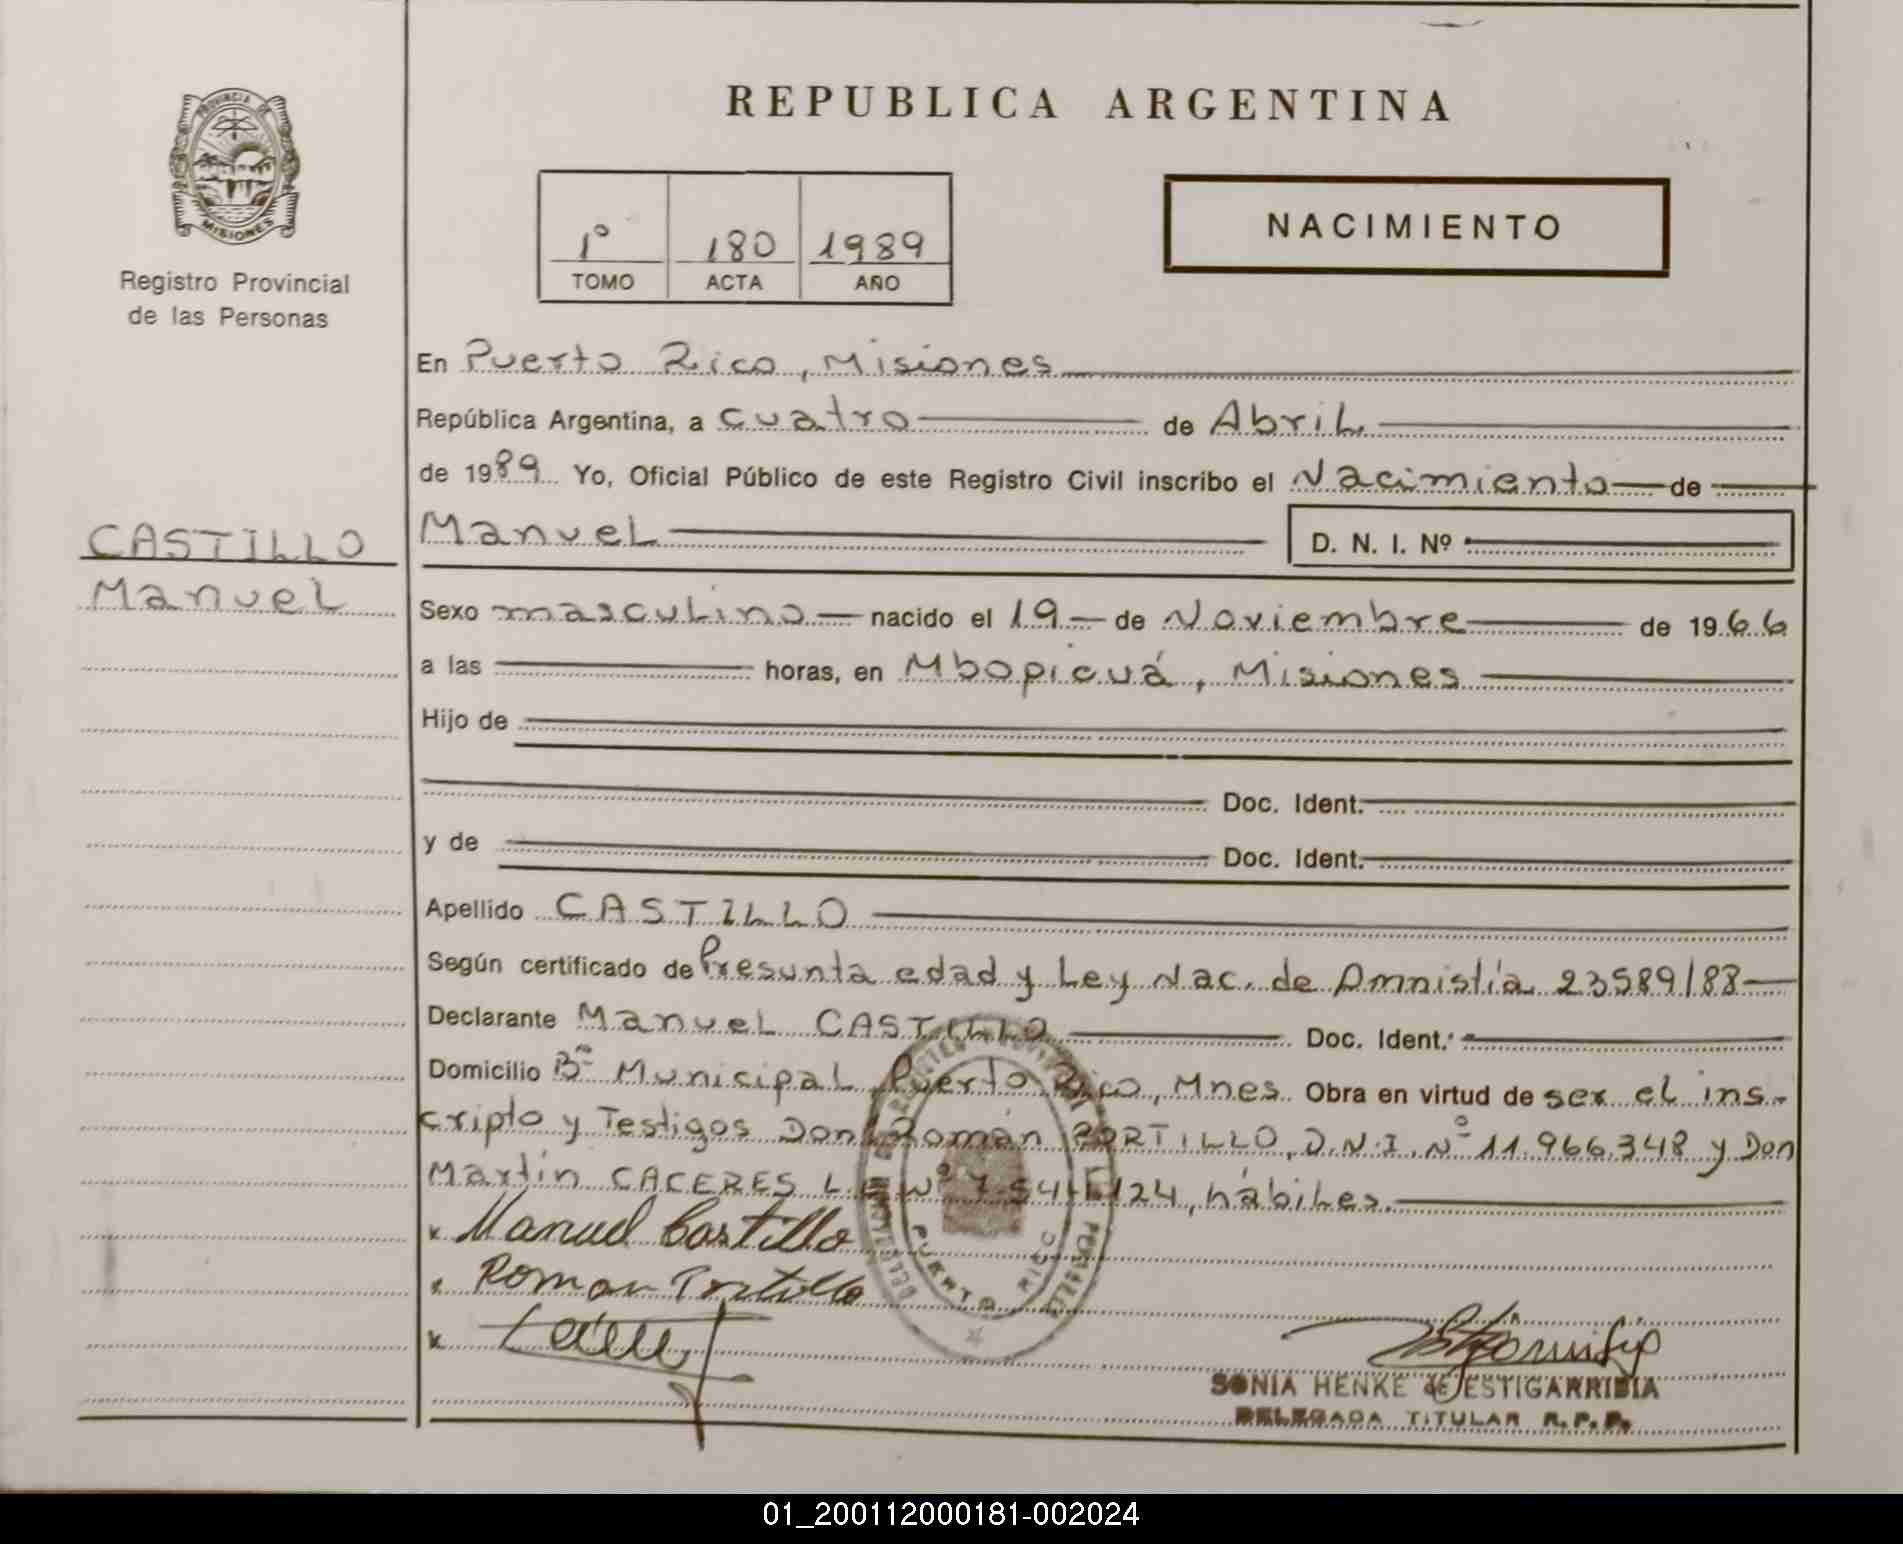 PROVINCIA DE
MISIONES
Registro Provincial
de las Personas
CASTILLO
Manuel
REPUBLICA ARGENTINA
1º 180 1989
TOMO ACTA AÑO
NACIMIENTO
En Puerto Rico, Misiones
República Argentina, a cuatro de Abril
de 1989 Yo, Oficial Público de este Registro Civil inscribo el Nacimiento de
Manuel D. N. I. Nº
Sexo masculino nacido el 19 de Noviembre de 1966
a las horas, en Mbopicuá, Misiones
Hijo de
Doc. Ident.
y de Doc. Ident.
Apellido CASTILLO
Según certificado de Presunta edad y Ley Nac. de Amnistía 23589/88
Declarante Manuel CASTILLO Doc. Ident.
Domicilio Bº Municipal, Puerto Rico, Mnes. Obra en virtud de ser el ins-
cripto y Testigos Don Román PORTILLO, D.N.I. Nº 11.966.348 y Don
Martín CACERES L. Nº 124, hábiles.
x Manuel Castillo
Roman Portillo
x
PUERTO RICO
SONIA HENKE de ESTIGARRIBIA
DELEGADA TITULAR R. P. P.
01_200112000181-002024